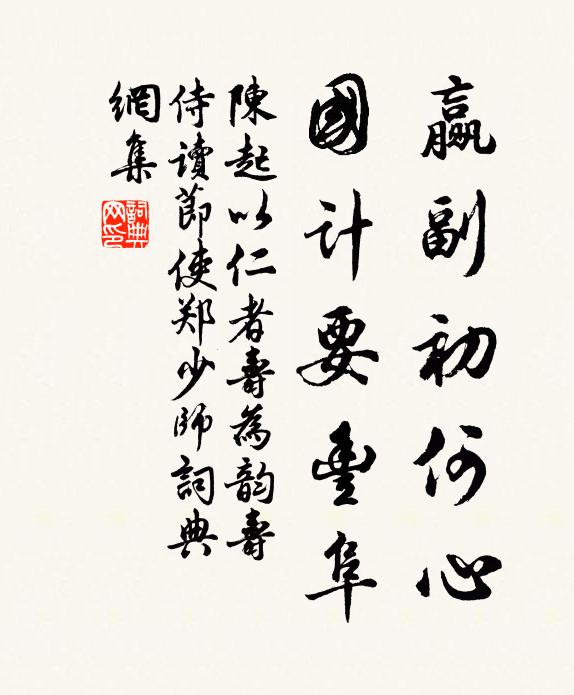 嬴副初何心
國计要豐阜
陳起以仁者壽為韵壽
侍讀節使郑少師詞典
網集
詞典
网印